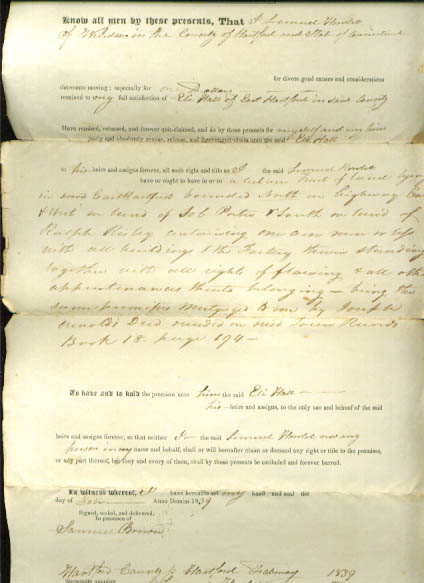 Know all men by these presents, That I Lemuel
of Windsor in the County of Hartford and State of Connecticut
for divers good causes and considerations
thereunto moving; especially for one Dollar
received to my full satisfaction of Eli Hall of East Hartford in said County
Have remised, released, and forever quit-claimed, and do by these presents for myself and my heirs
fully and absolutely remise, release, and forever quit-claim unto the said Eli Hall
to his heirs and assigns forever, all such right and title as I the said Lemuel
have or ought to have in or to a certain tract of land lying
in said East Hartford bounded North on highway East
& West on land of Job Porter & South on land of
Ralph Risley containing one acre more or less
with all buildings & the Factory thereon standing
together with all rights of flowing & all other
appurtenances thereto belonging — being the
same premises Mortgaged to me by Joseph
Arnold's Deed recorded in said Town Records
Book 18. page 194 —
To have and to hold the premises unto him the said Eli Hall
his heirs and assigns, to the only use and behoof of the said
heirs and assigns forever, so that neither I the said Lemuel nor any
person in my name and behalf, shall or will hereafter claim or demand any right or title to the premises,
or any part thereof, but they and every of them, shall by these presents be excluded and forever barred.
In witness whereof, I have hereunto set my hand and seal the
day of Anno Domini 1839
Signed, sealed, and delivered,
In presence of
Samuel Brown
Hartford County ss Hartford February 1839
personally appeared